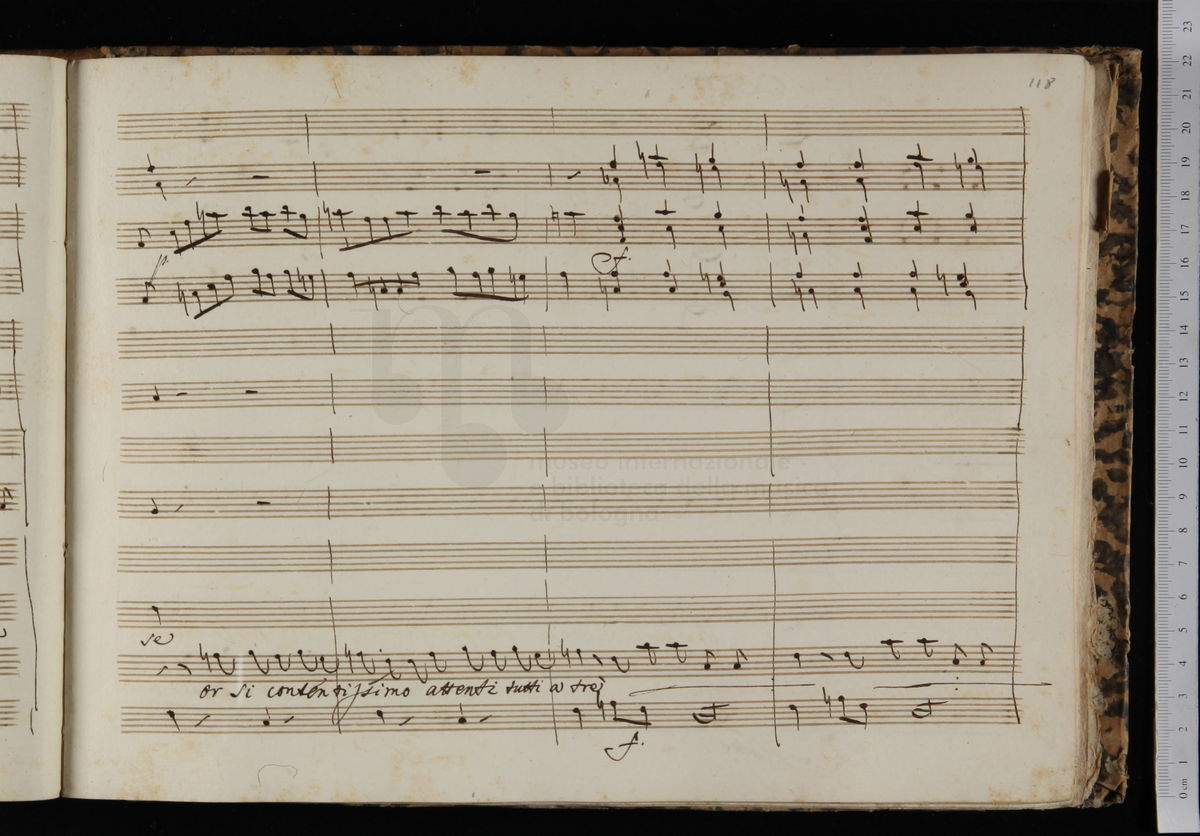 118
p.
f.
museo internazionale
e biblioteca della musica
di bologna
se
or si contentissimo attenti tutti a tre
f.
23
22
21
20
19
18
17
16
15
14
13
12
11
10
9
8
7
6
5
4
3
2
1
0 cm